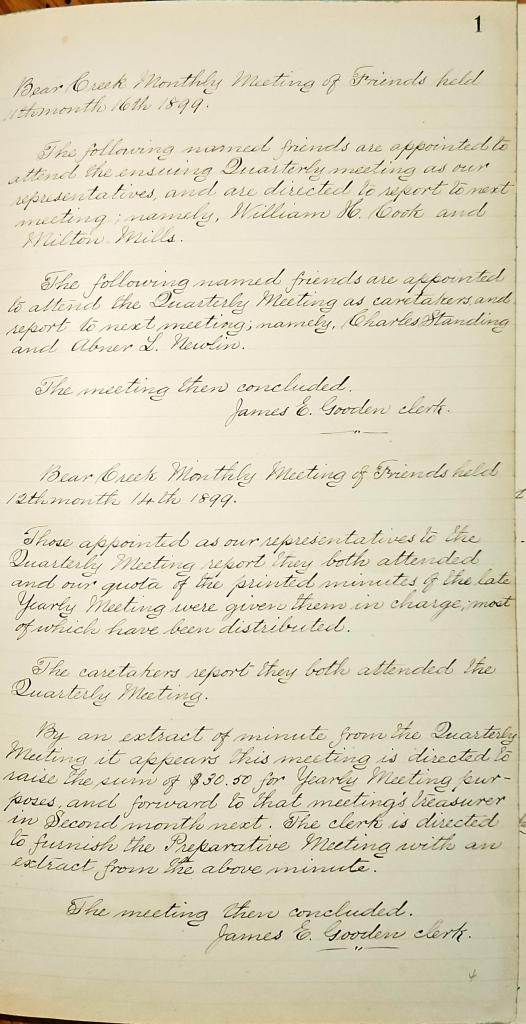 1
Bear Creek Monthly Meeting of Friends held
11th month 16th 1899.
The following named friends are appointed to
attend the ensuing Quarterly meeting as our
representatives, and are directed to report to next
meeting; namely, William H. Cook and
Milton Mills.
The following named friends are appointed
to attend the Quarterly Meeting as caretakers, and
report to next meeting; namely, Charles Standing
and Abner L. Newlin.
The meeting then concluded.
James E. Gooden clerk.
Bear Creek Monthly Meeting of Friends held
12th month 14th 1899.
Those appointed as our representatives to the
Quarterly Meeting report they both attended
and our quota of the printed minutes of the late
Yearly Meeting were given them in charge, most
of which have been distributed.
The caretakers report they both attended the
Quarterly Meeting.
By an extract of minute from the Quarterly
Meeting it appears this meeting is directed to
raise the sum of $30.50 for Yearly Meeting pur-
poses, and forward to that meeting's treasurer
in Second month next. The clerk is directed
to furnish the Preparative Meeting with an
extract from the above minute.
The meeting then concluded.
James E. Gooden clerk.